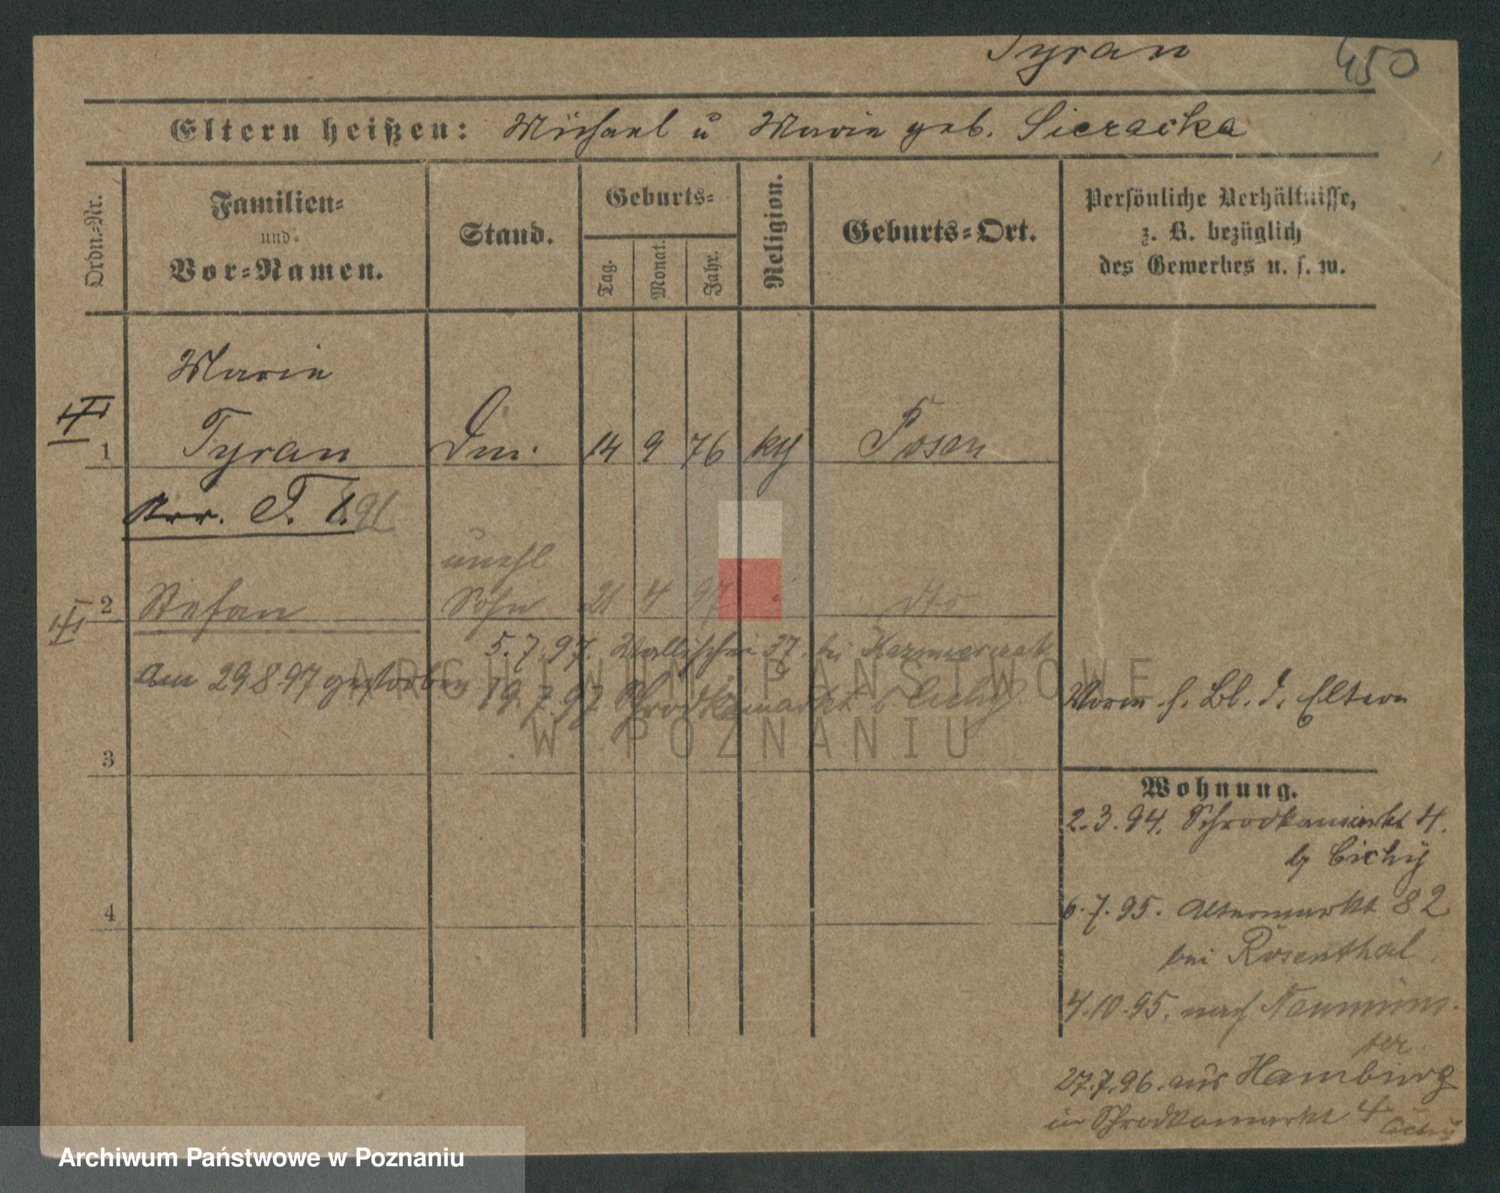 Tyran 450
Eltern heißen: Michael u Marie geb. Sieracka
Ordn.-Nr.
Familien-
und-
Vor-Namen.
Stand.
Geburts-
Tag.
Monat.
Jahr.
Religion.
Geburts-Ort.
Persönliche Verhältnisse,
z. B. bezüglich
des Gewerbes u. s. w.
Marie
1 Tyran Dm. 14 9 76 kth Posen
T. 1.91
unehl
2 Stefan Sohn 21 4 97 dto
5.7.97. Wallischei 37. bei Kazmierczak
am 29 8 97 gestorben 19.7.97 Schrodkamarkt Cichy
Vorm s. Bl. d. Eltern
3
Wohnung.
2.3.94. Schrodkamarkt 4.
b/ Cichy
4
6.7.95. Altermarkt 82
bei Rosenthal.
4.10.95. nach Neumüns-
ter.
27.7.96. aus Hamburg
in Schrodkamarkt 4 Cichy
ARCHIWUM PAŃSTWOWE
W POZNANIU
Archiwum Państwowe w Poznaniu